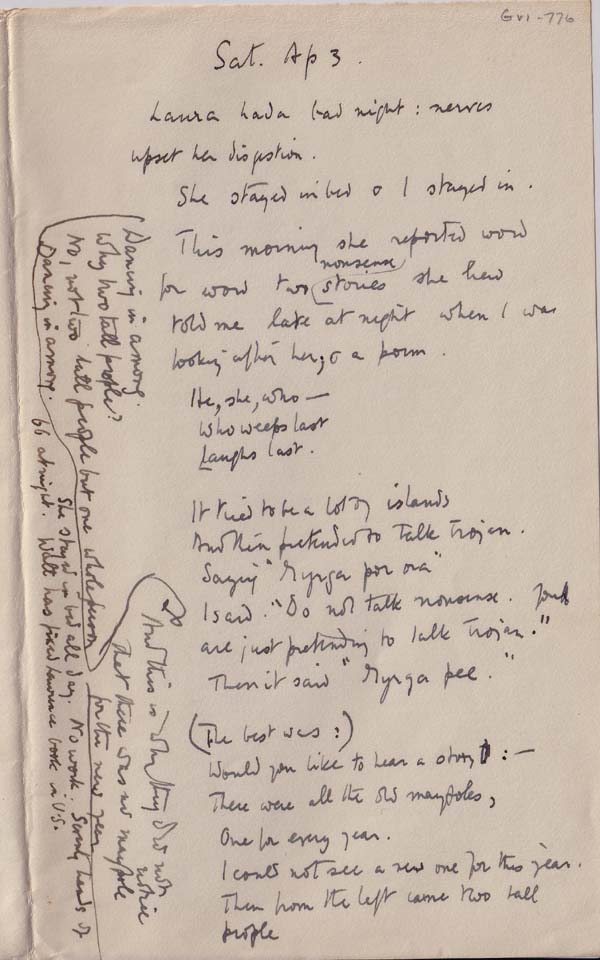 GVI-776
Sat. Ap 3.
Laura had a bad night: nerves
upset her digestion.
She stayed in bed & I stayed in.
This morning she reported word
for word two nonsense stories she had
told me late at night when I was
looking after her, & a poem.
He, she, who —
Who weeps last
Laughs last.
It tried to be a lot of islands
And then pretended to talk Trojan.
Saying "Myrga por ora"
I said. "Do not talk nonsense. You
are just pretending to talk Trojan."
Then it said "Myrga pee."
(The best was:)
Would you like to hear a story: —
There were all the old maypoles,
One for every year.
I could not see a new one for this year.
Then from the left came two tall
people
Dancing in among.
Why two tall people?
No, not two tall people but one whole person
Dancing in among.
And this is why they did not
notice
That there was no maypole
for the new year
She stayed in bed all day. No work. Seventy heads of
bb at night. Watt has fixed Lawrence book in U.S.